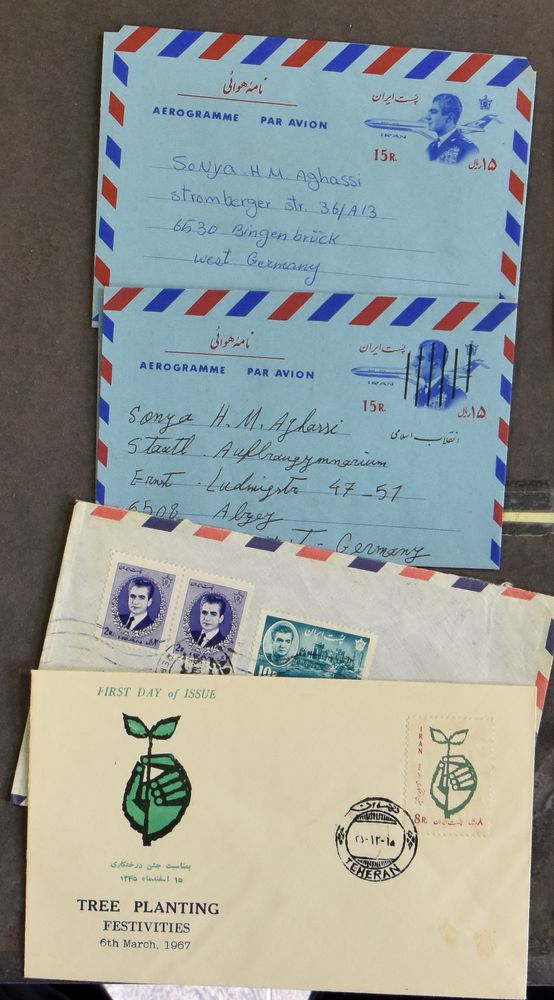 نامه هوائی
AEROGRAMME PAR AVION
پست ایران
IRAN
15 R.
۱۵ ریال
Sonya H.M. Aghassi
stromberger str. 36/A13
6530 Bingenbrück
west Germany
نامه هوائی
AEROGRAMME PAR AVION
پست ایران
IRAN
15 R.
۱۵ ریال
انقلاب اسلامی
Sonya H. M. Aghassi
Staatl. Aufbaugymnarium
Ernst. Ludwigstr 47-51
6508 Alzey
Germany
پست ایران
2R. IRAN
2R.
پست ایران
10R
FIRST DAY of ISSUE
IRAN
8 R.
۸ ریال پست ایران
TEHERAN
بمناسبت جشن درختکاری
۱۵ اسفندماه ۱۳۴۵
TREE PLANTING
FESTIVITIES
6th March, 1967